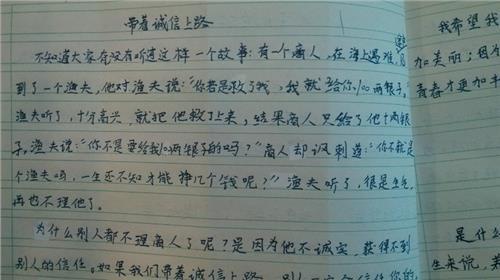 带着诚信上路
不知道大家有没有听过这样一个故事:有一个商人,在海上遇难,遇
到了一个渔夫,他对渔夫说:“你若是救了我,我就给你100两银子。”
渔夫听了,十分高兴,就把他救了上来,结果商人只给了他十两银
子。渔夫说:“你不是要给我100两银子的吗?”商人却讽刺道:“你不就是
个渔夫吗,一生还不知才能挣几个钱呢?”渔夫听了,很是生气,
再也不理他了。
为什么别人都不理商人了呢?是因为他不诚实,获得不到
别人的信任。如果我们带着诚信上路,别人
我希望我
加美丽;因为
青春才更加
是什么
生来说,